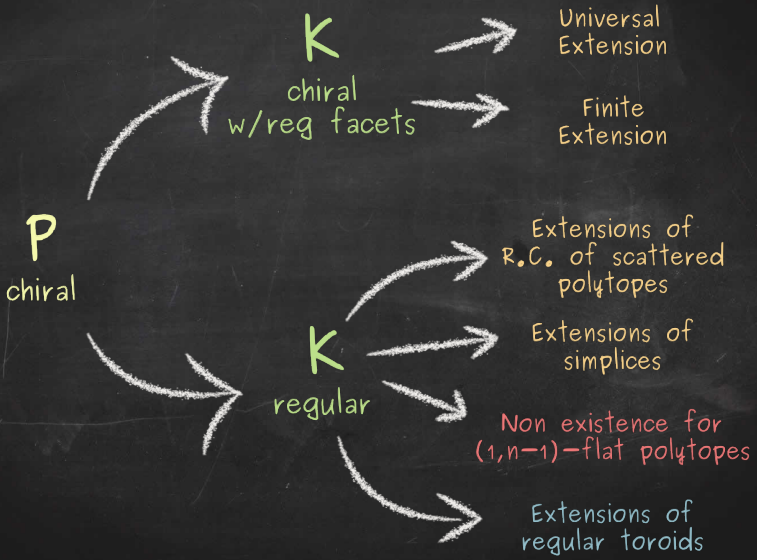 P
chiral
K
chiral
w/reg facets
Universal
Extension
Finite
Extension
K
regular
Extensions of
R.C. of scattered
polytopes
Extensions of
simplices
Non existence for
(1,n-1)-flat polytopes
Extensions of
regular toroids